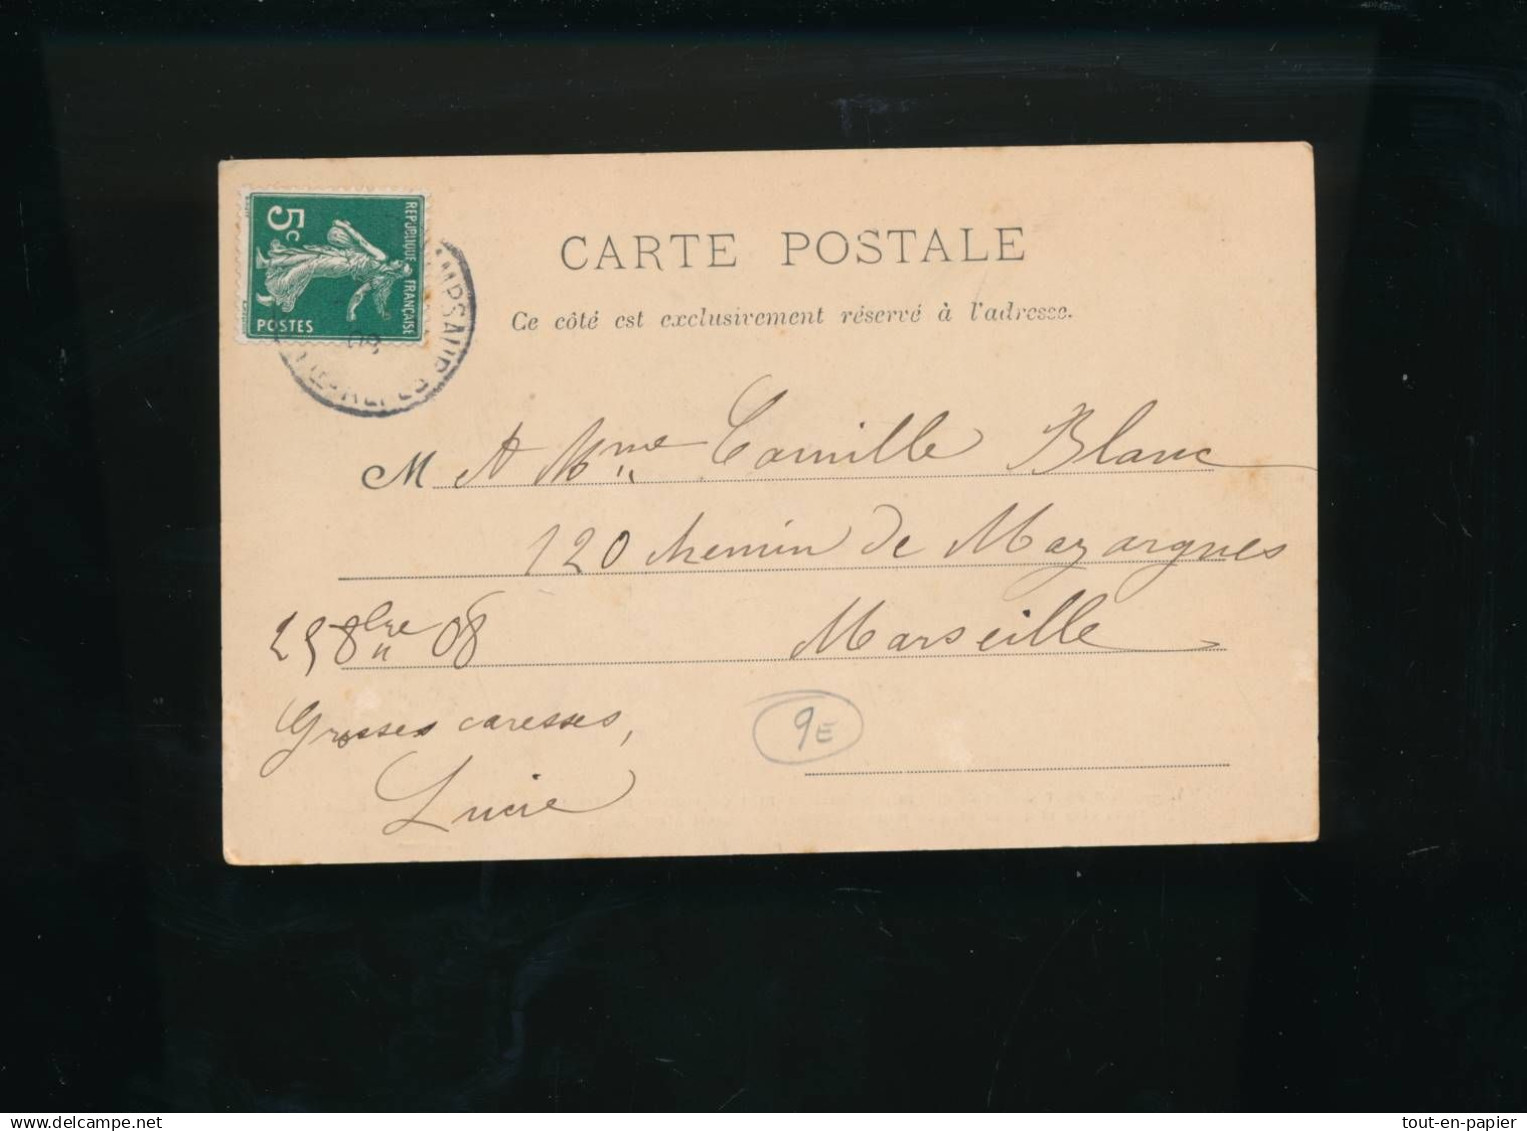 REPUBLIQUE FRANÇAISE
5c
POSTES
CARTE POSTALE
Ce côté est exclusivement réservé à l'adresse.
M A Mme Camille Blanc
120 chemin de Mazargues
Marseille
25 8bre 08
Grosses caresses,
Lucie
9E
www.delcampe.net
tout-en-papier